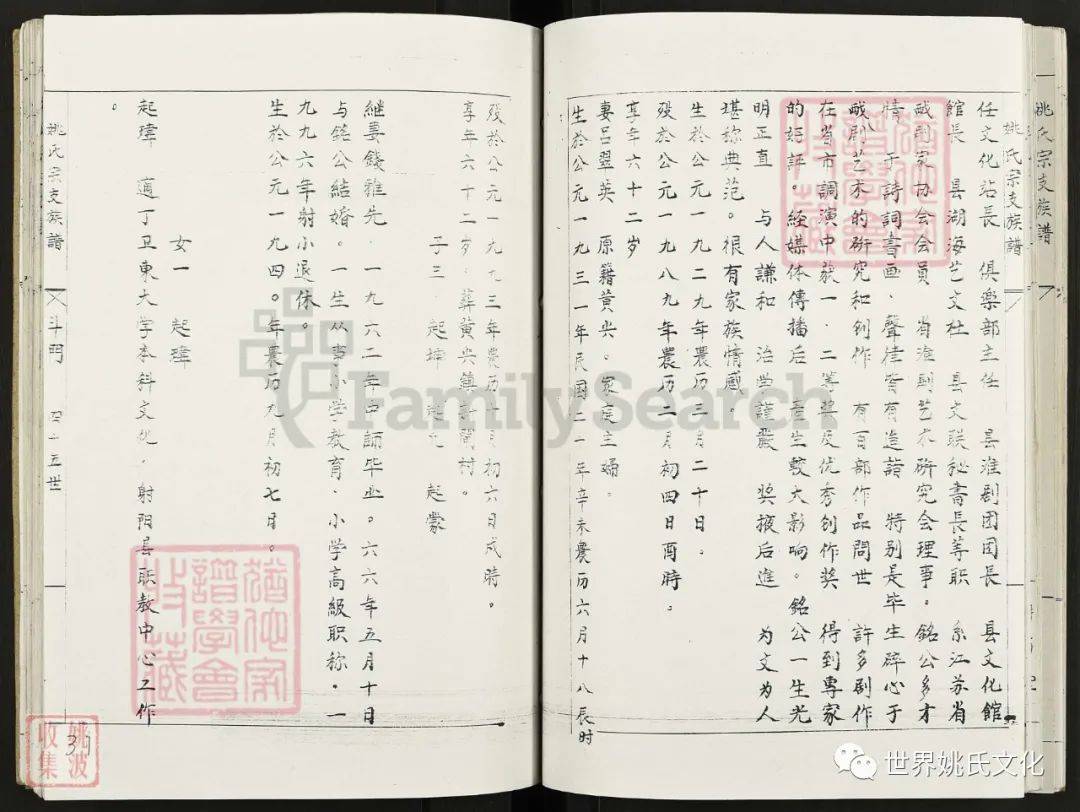 姚氏宗支族譜
姚氏宗支族譜
任文化站長 俱樂部主任 县淮剧团团長 县文化館
館長 县湖海艺文社 县文联秘書長等职 系江苏省
戏剧家协会会员 省淮剧艺术研究会理事。銘公多才
情 于詩詞書画、聲律皆有造詣 特别是毕生碎心于
戏剧艺术的研究和创作 有百部作品問世 許多剧作
在省市調演中获一、二等奖及优秀创作奖 得到專家
的好評。经媒体傳播后 產生較大影响。銘公一生光
明正直 与人謙和 治学謹嚴 奖掖后進 为文为人
堪称典范。很有家族情感。
生於公元一九二九年農历三月二十日。
殁於公元一九八九年農历二月初四日酉時。
享年六十二岁
妻吕翠英 原籍黄尖。家庭主婦。
生於公元一九三一年民國二一年辛未農历六月十八辰时
殁於公元一九九三年農历十月初六日戍時。
享年六十二岁。葬黄尖鎮新閘村。
子三 起坤 起 起蒙
継妻錢雅先．一九六二年中師毕业。六六年五月十日
与銘公結婚。一生从事小学教育．小学高級职称．一
九九六年射小退休。
生於公元一九四〇年農历九月初七日。
女一 起瑋
起瑋 適丁卫東大学本科文化．射阳县职教中心工作
。
姚氏宗支族譜 斗門 四十五世
39
姚波
收集
FamilySearch
世界姚氏文化